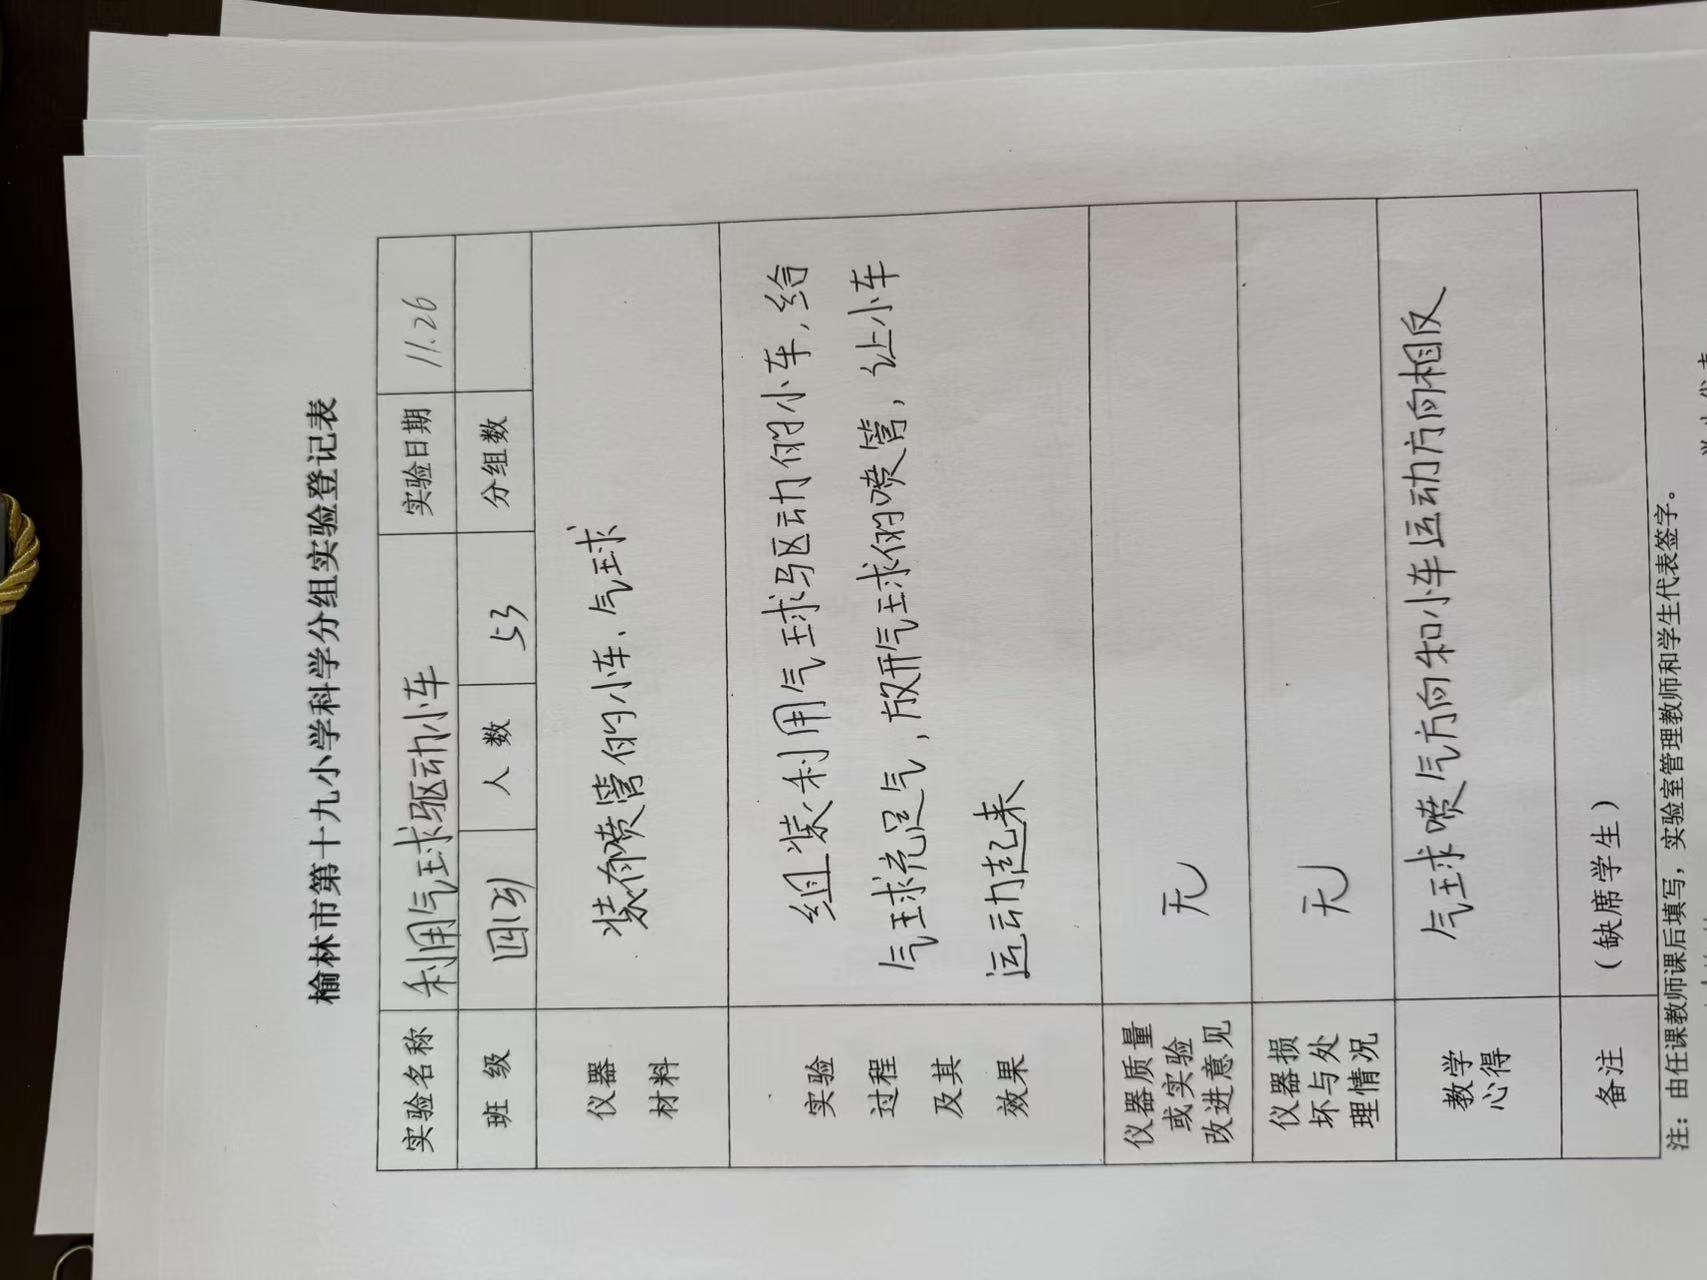 榆林市第十九小学科学分组实验登记表
实验名称 利用气球驱动小车 实验日期 11.26
班 级 人 数 53 分组数
仪器
材料
装有喷管的小车、气球
实验
过程
及其
效果
组装利用气球驱动的小车,给
气球充足气,放开气球的喷管,让小车
运动起来
仪器质量
或实验
改进意见
无
仪器损
坏与处
理情况
无
教学
心得
气球喷气方向和小车运动方向相反
备注 (缺席学生)
注:由任课教师课后填写,实验室管理教师和学生代表签字。